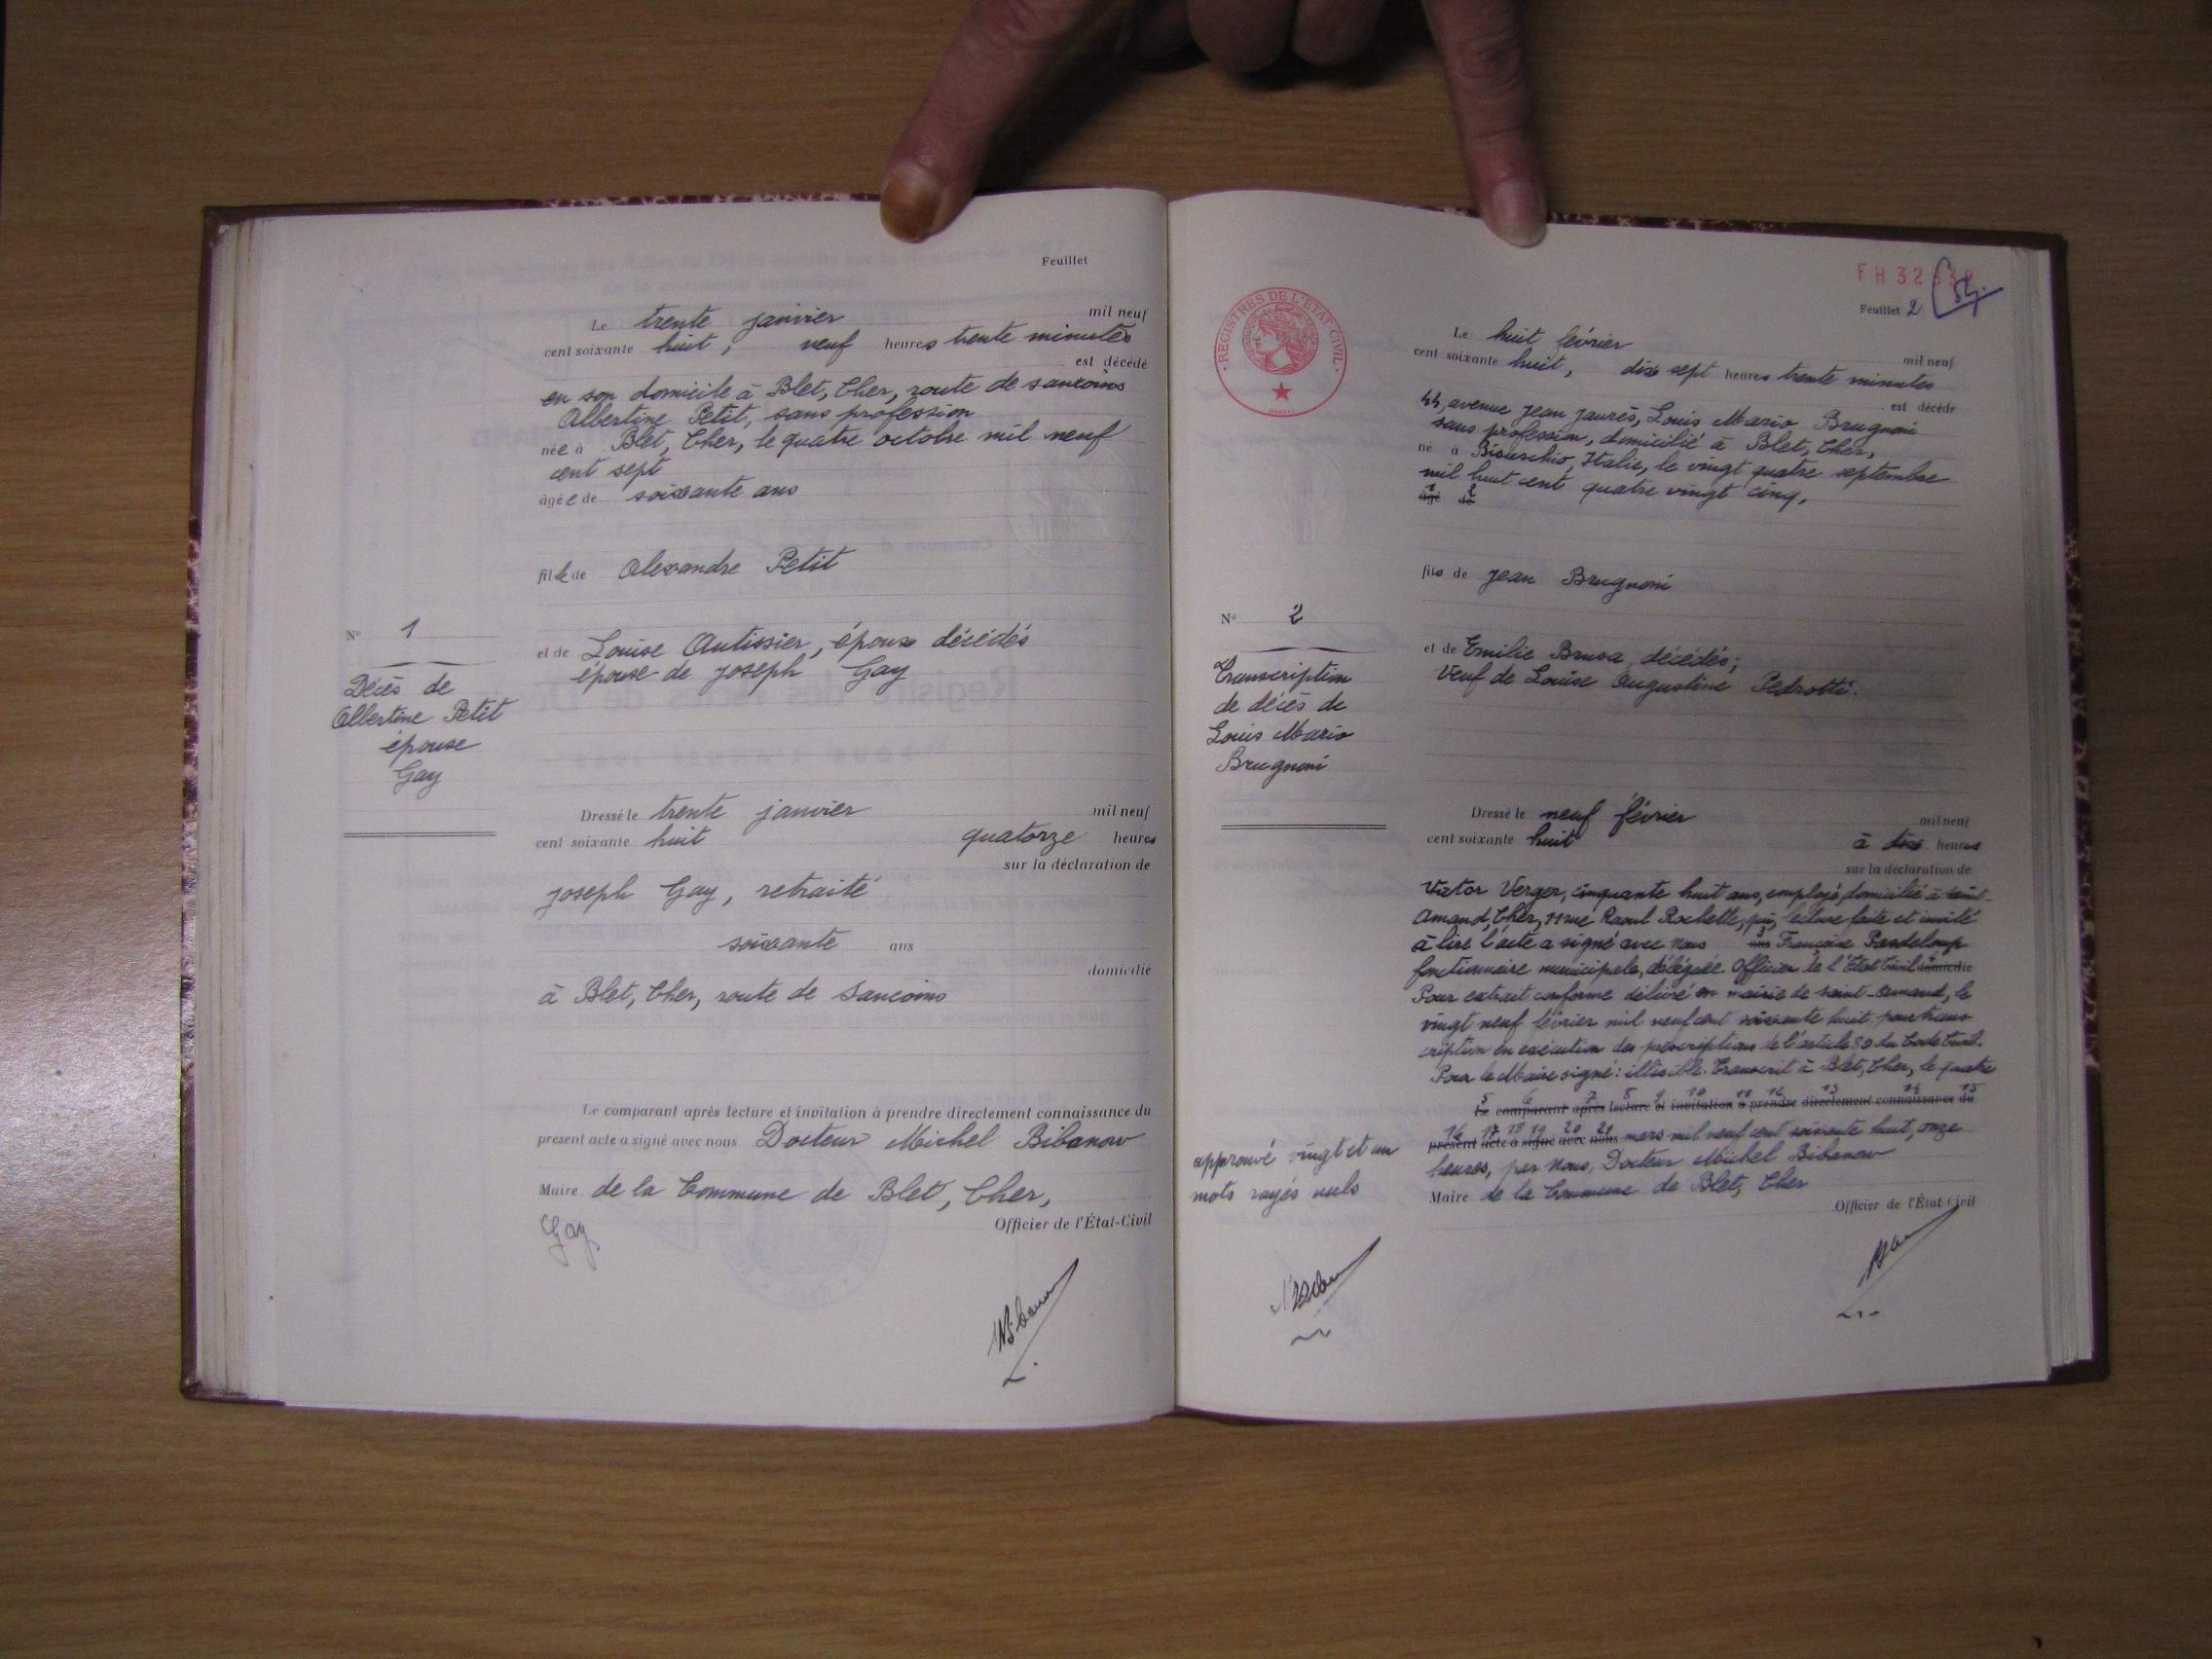 Feuillet
Le trente janvier mil neuf
cent soixante huit, neuf heures trente minutes
est décédé
en son domicile à Blet, Cher, route de Sancoins
Albertine Petit, sans profession
née à Blet, Cher, le quatre octobre mil neuf
cent sept
âgée de soixante ans
fille de Alexandre Petit
N° 1
et de Louise Autissier, époux décédés
épouse de Joseph Gay
Décès de
Albertine Petit
épouse
Gay
Dressé le trente janvier mil neuf
cent soixante huit quatorze heures
sur la déclaration de
Joseph Gay, retraité
soixante ans
domicilié
à Blet, Cher, route de Sancoins
Le comparant après lecture et invitation à prendre directement connaissance du
présent acte a signé avec nous Docteur Michel Bibanow
Maire de la Commune de Blet, Cher,
Officier de l'État-Civil
Gay
REGISTRES DE L'ÉTAT CIVIL
FH 32
Feuillet 2
Le huit février mil neuf
cent soixante huit, dix sept heures trente minutes
est décédé
44, avenue Jean Jaurès, Louis Mario Brugnoni
sans profession, domicilié à Blet, Cher,
né à Bisuschio, Italie, le vingt quatre septembre
mil huit cent quatre vingt cinq,
1 2
âgé de
fils de Jean Brugnoni
N° 2
et de Emilie Brusa, décédés;
Veuf de Louise Augustine Pedrotti.
Transcription
de décès de
Louis Mario
Brugnoni
Dressé le neuf février mil neuf
cent soixante huit à dix heures
sur la déclaration de
Victor Verger, cinquante huit ans, employé, domicilié à Saint-
Amand, Cher, 11 rue Raoul Rochette, qui, lecture faite et invité
à lire l'acte a signé avec nous ans Françoise Pasdeloup
fonctionnaire municipale, déléguée Officier de l'Etat Civil domicilié
Pour extrait conforme délivré en mairie de Saint-Amand, le
vingt neuf février mil neuf cent soixante huit pour trans
cription en exécution des prescriptions de l'article 80 du Code Civil.
Pour le Maire signé: illisible. Transcrit à Blet, Cher, le quatre
5 6 7 8 9 10 11 12 13 14 15
Le comparant après lecture et invitation à prendre directement connaissance du
16 17 18 19 20 21
présent acte a signé avec nous mars mil neuf cent soixante huit, onze
heures, par Nous, Docteur Michel Bibanow
Maire de la Commune de Blet, Cher
Officier de l'État-Civil
approuvé vingt et un
mots rayés nuls